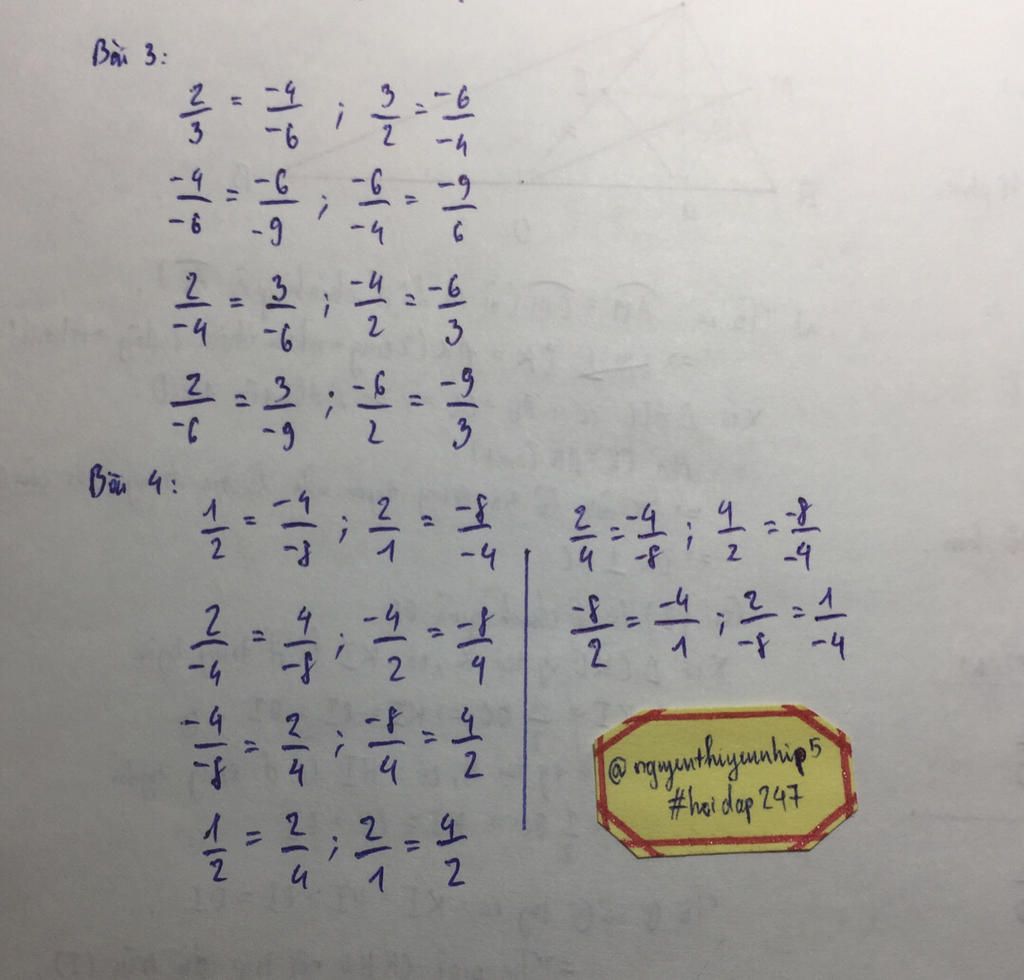 Bài 3:
2/3 = -4/-6 ; 3/2 = -6/-4
-4/-6 = -6/-9 ; -6/-4 = -9/6
2/-4 = 3/-6 ; -4/2 = -6/3
2/-6 = 3/-9 ; -6/2 = -9/3
Bài 4:
1/2 = -4/-8 ; 2/1 = -8/-4
2/-4 = 4/-8 ; -4/2 = -8/4
-4/-8 = 2/4 ; -8/4 = 4/2
1/2 = 2/4 ; 2/1 = 4/2
2/4 = -4/-8 ; 4/2 = -8/-4
-8/2 = -4/1 ; 2/-8 = 1/-4
@nguyenthiyennhip5
#hoidap247